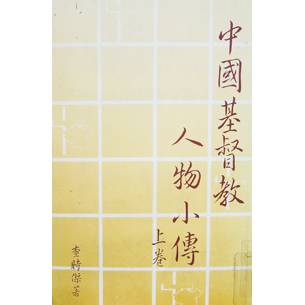 中國基督教
人物小傳
上卷
查時傑著